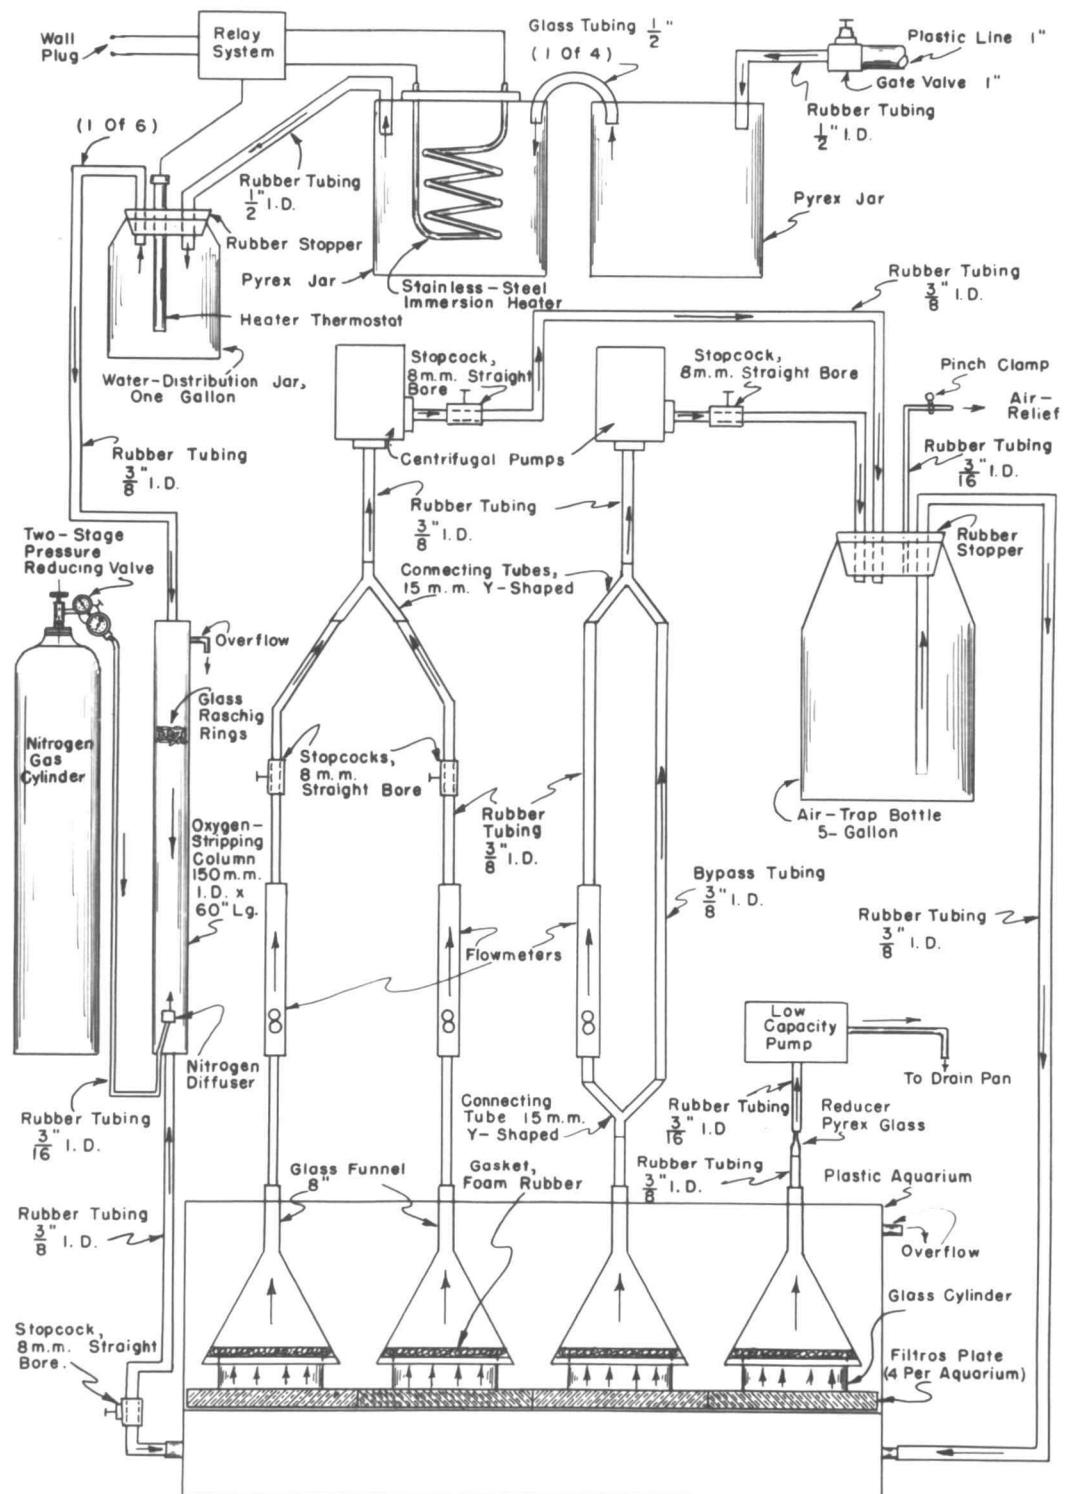 Wall
Plug
Relay
System
Glass Tubing 1/2"
(1 Of 4)
Plastic Line 1"
Gate Valve 1"
Rubber Tubing
1/2" I.D.
(1 Of 6)
Rubber Tubing
1/2" I.D.
Pyrex Jar
Rubber Stopper
Pyrex Jar
Stainless-Steel
Immersion Heater
Heater Thermostat
Rubber Tubing
3/8" I.D.
Water-Distribution Jar,
One Gallon
Stopcock,
8m.m. Straight
Bore
Stopcock,
8m.m. Straight Bore
Pinch Clamp
Air-
Relief
Rubber Tubing
3/8" I.D.
Centrifugal Pumps
Rubber Tubing
3/16" I.D.
Rubber Tubing
3/8" I.D.
Two-Stage
Pressure
Reducing Valve
Rubber
Stopper
Connecting Tubes,
15 m.m. Y-Shaped
Overflow
Glass
Raschig
Rings
Nitrogen
Gas
Cylinder
Stopcocks,
8 m.m.
Straight Bore
Rubber
Tubing
3/8" I.D.
Air-Trap Bottle
5-Gallon
Oxygen-
Stripping
Column
150 m.m.
I.D. x
60" Lg.
Bypass Tubing
3/8" I.D.
Rubber Tubing
3/8" I.D.
Flowmeters
Low
Capacity
Pump
Nitrogen
Diffuser
To Drain Pan
Rubber Tubing
3/16" I.D.
Connecting
Tube 15 m.m.
Y-Shaped
Rubber Tubing
3/16" I.D
Reducer
Pyrex Glass
Glass Funnel
8"
Gasket,
Foam Rubber
Rubber Tubing
3/8" I.D.
Plastic Aquarium
Rubber Tubing
3/8" I.D.
Overflow
Glass Cylinder
Stopcock,
8m.m. Straight
Bore.
Filtros Plate
(4 Per Aquarium)